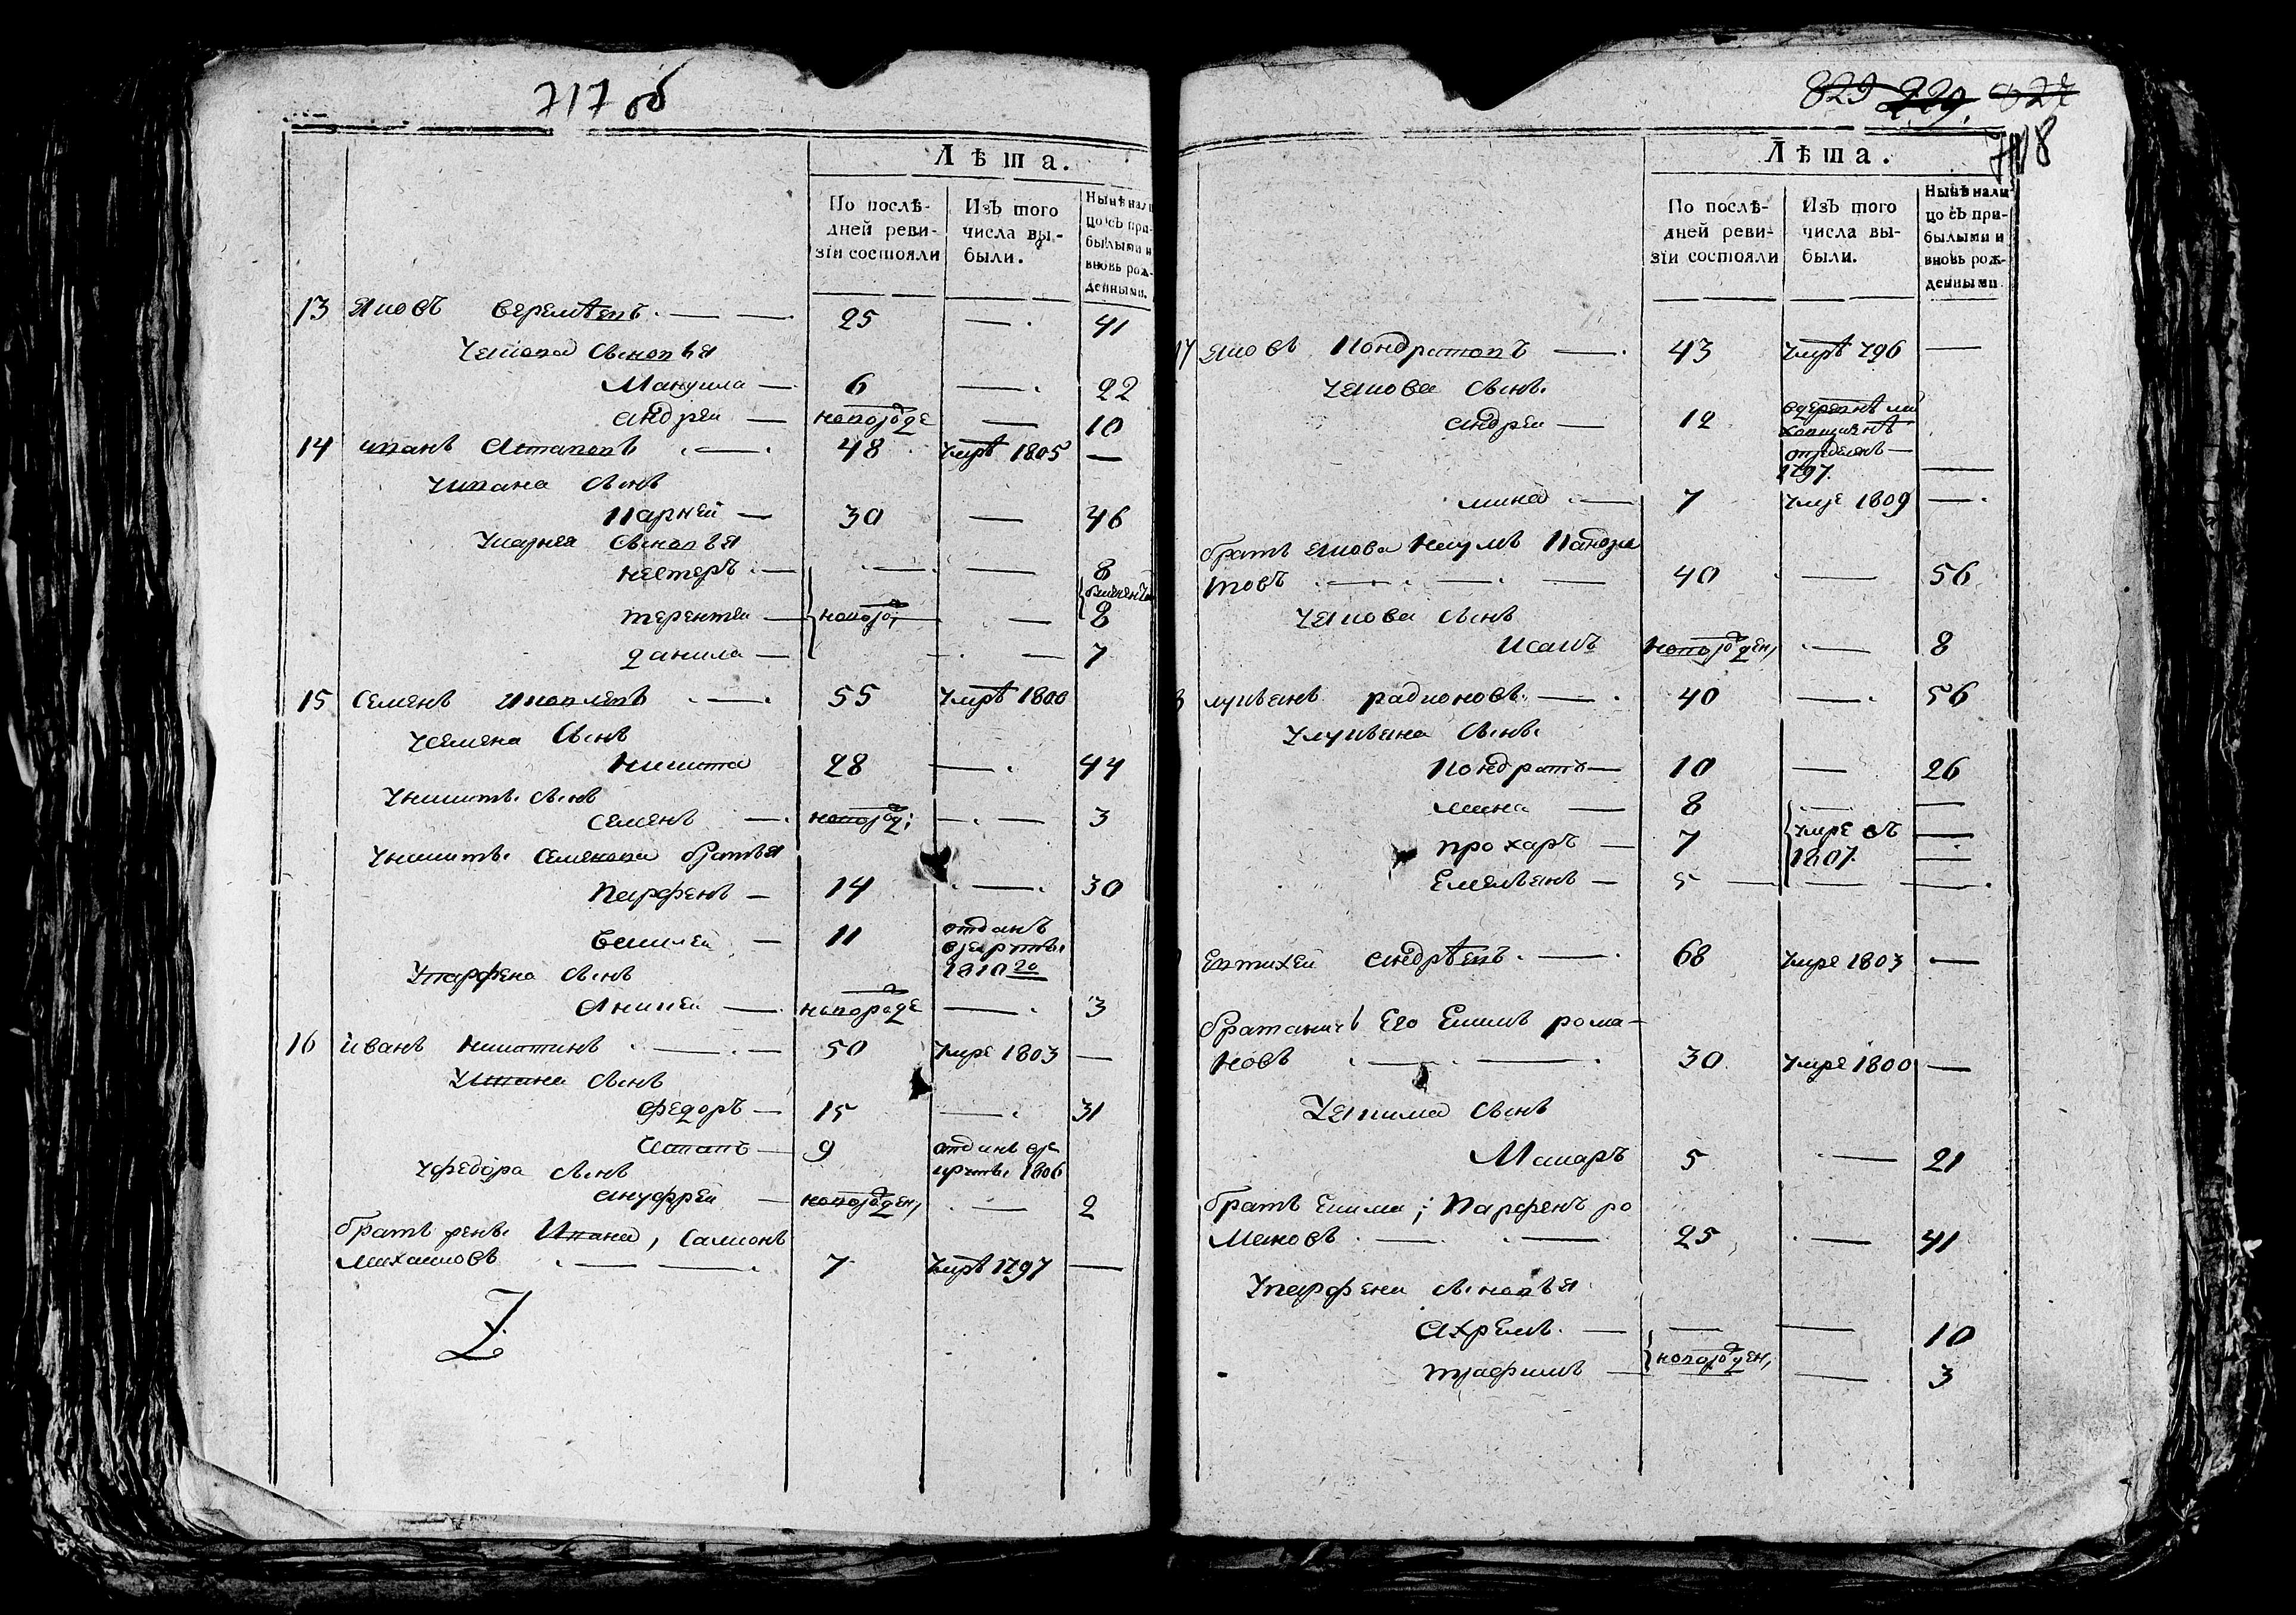 717 об
Лѣта.
По послѣ-
дней реви-
зіи состояли
Изъ того
числа вы-
были.
Нынѣ нали
цо съ при-
былыми и
вновь рож-
денными.
13 Яковъ Веремѣевъ 25 — 41
У Якова Сыновья
Мануила — 6 — 22
Андреи — новорожде — 10
14 Иванъ Астаповъ 48 Умрѣ 1805 —
У Ивана Сынъ
Карнеи — 30 — 46
У Карнея Сыновья
Нестеръ — — 8
близнецы
терентеи — новорож — 8
данила — — 7
15 Семенъ Яковлевъ 55 Умрѣ 1800
У Семена Сынъ
Никита 28 — 44
У Никиты Сынъ
Семенъ — новорожд — 3
У Никиты Семенова братья
Парфенъ — 14 — 30
Василеи — 11 отданъ
в рекруты
1810 го
У Парфена Сынъ
Аникеи — новорожде — 3
16 Иванъ Никитинъ 50 Умре 1803 —
У Ивана Сынъ
Федоръ — 15 — 31
9 отданъ в ре
круты 1806
У Федора Сынъ
Ануфреи — новорожден, — 2
братъ Ивана, Самсонъ
Михаиловъ 7 Умрѣ 1797 —
829 229. 827
718
Лѣта.
По послѣ-
дней реви-
зіи состояли
Изъ того
числа вы-
были.
Нынѣ нали
цо съ при-
былыми и
вновь рож-
денными
17 Яковъ Кондратовъ — 43 Умрѣ 796 —
У Якова Сынъ
Андреи — 12
отделенъ —
1797. —
мина — 7 Умре 1809 —
братъ Якова Наумъ Кандра
товъ — 40 — 56
У Якова Сынъ
Исакъ новорожден, — 8
лукьянъ радионовъ — 40 — 56
У лукьяна Сынъ
Кондратъ — 10 — 26
мина — 8 — —
прохаръ — 7 Умре въ —
1807. —
Емельянъ — 5 — —
Евтихеи Андрѣевъ — 68 Умре 1803 —
братаничъ Его Екимъ рома-
новъ — 30 Умре 1800 —
У Якима Сынъ
Макаръ 5 — 21
братъ Екима; Парфенъ ро
мановъ — 25 — 41
У Парфена Сыновья
Ахремъ — — — 10
трафимъ — новорожден, — 3